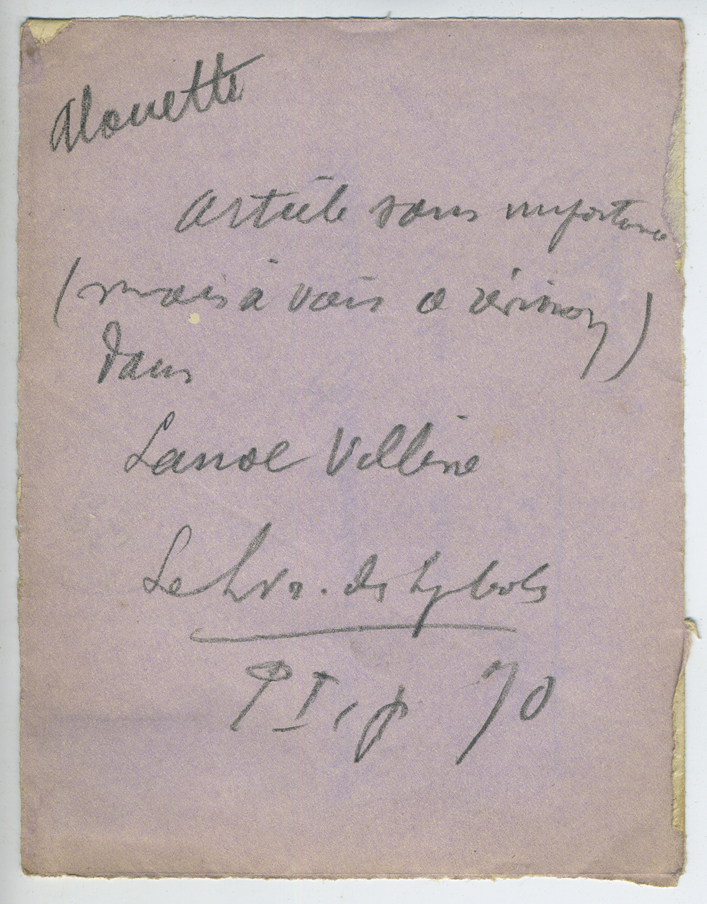 Alouette
Article sans importance
(mais à voir
dans
Lanoe Villène
Le Livr. des Symbols
T I, p 70